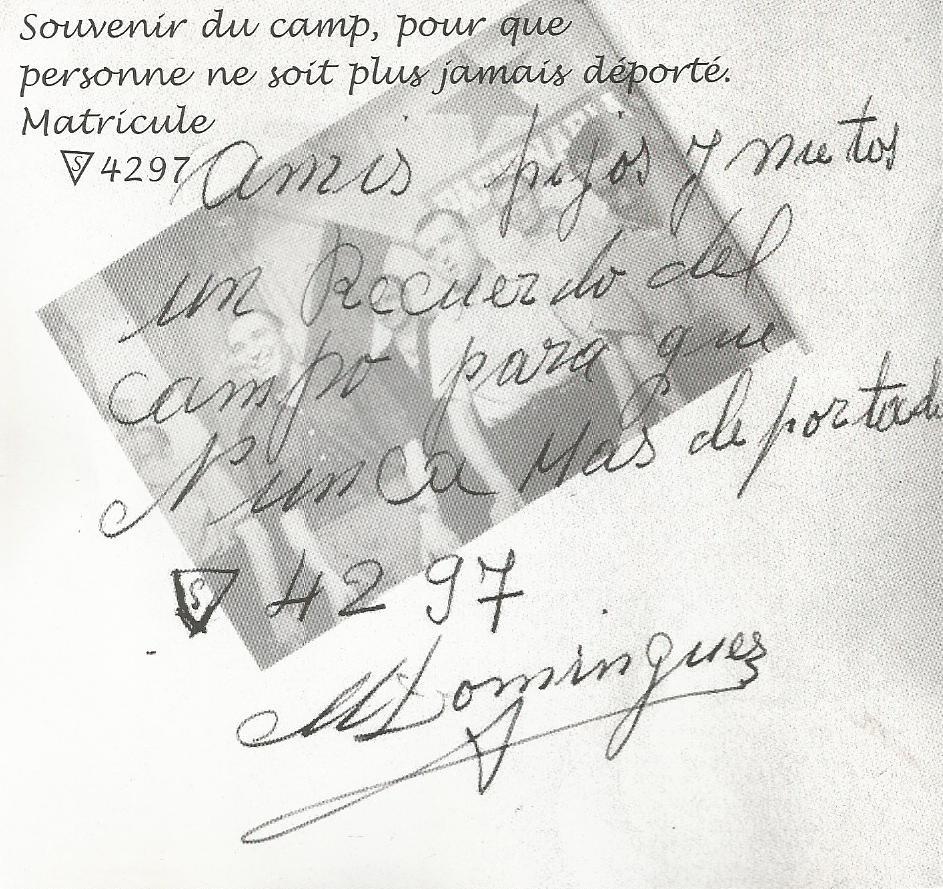 Souvenir du camp, pour que
personne ne soit plus jamais déporté.
Matricule
S 4297
A mis hijos y nietos
un Recuerdo del
campo para que
Nunca Mas deportad
S 4297
M Domingues